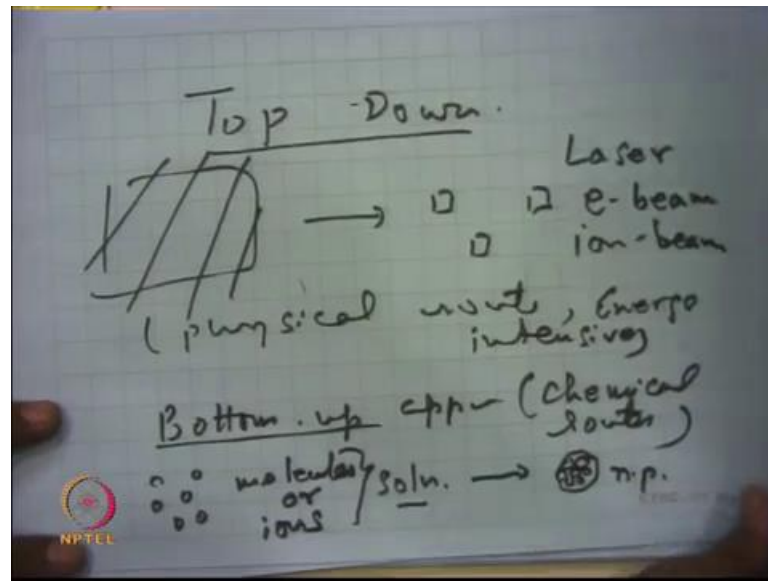 Top-Down.
Laser
e-beam
ion-beam
(physical route, Energy
intensive)
Bottom-up appr (chemical
route)
molecules
or
ions
soln. → n.p.
NPTEL